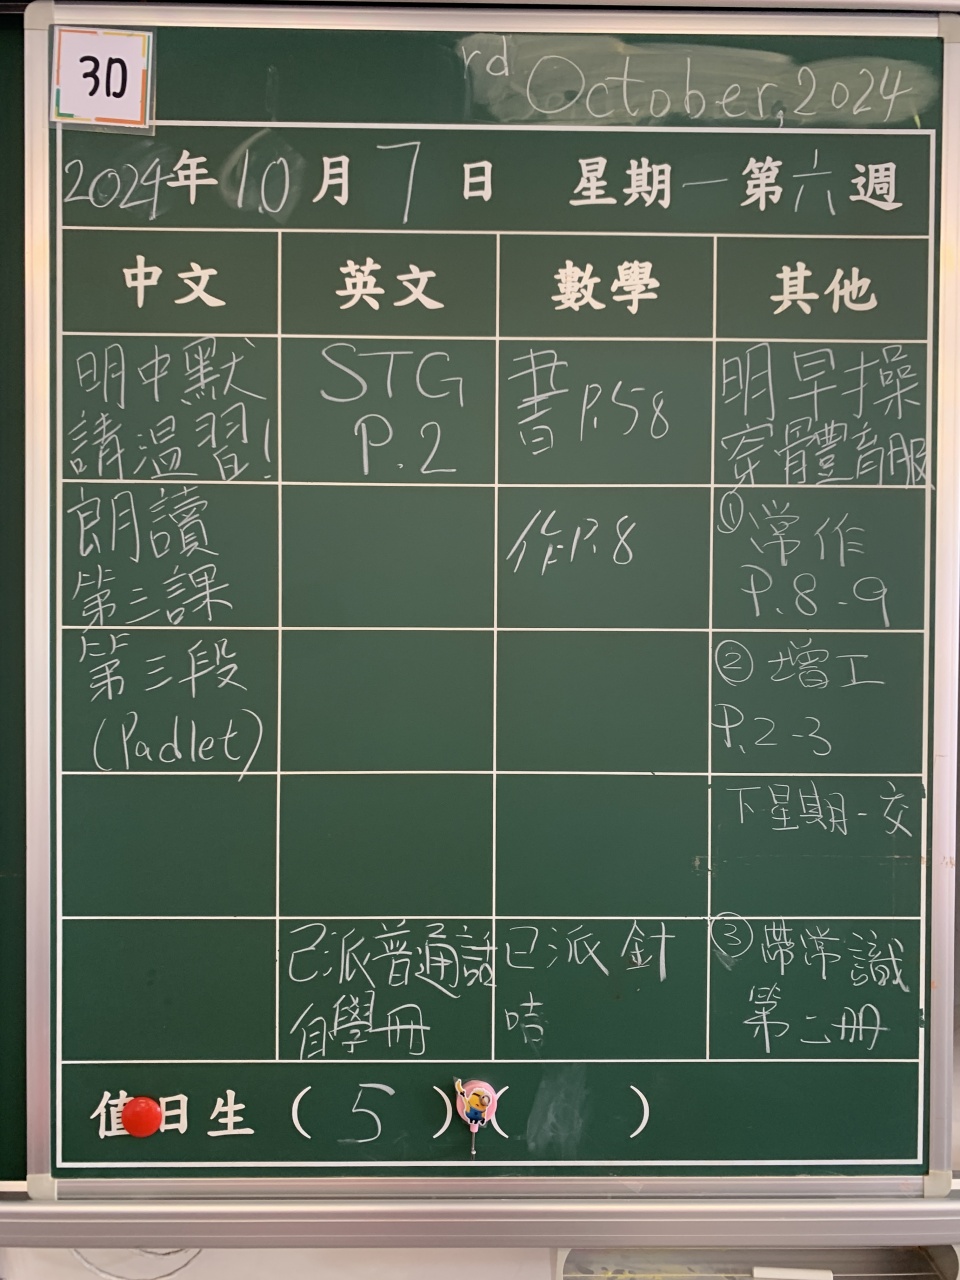 3D
rd October, 2024
2024年10月7日 星期一 第六週
中文 英文 數學 其他
明中默
請溫習!
STG
P.2
書P.58
明早操
穿體育服
朗讀
第三課
作P.8
①常作
P.8-9
第三段
(Padlet)
②增工
P.2-3
下星期一交
已派普通話
自學冊
已派針
咭
③帶常識
第二冊
值日生 ( 5 ) ( )